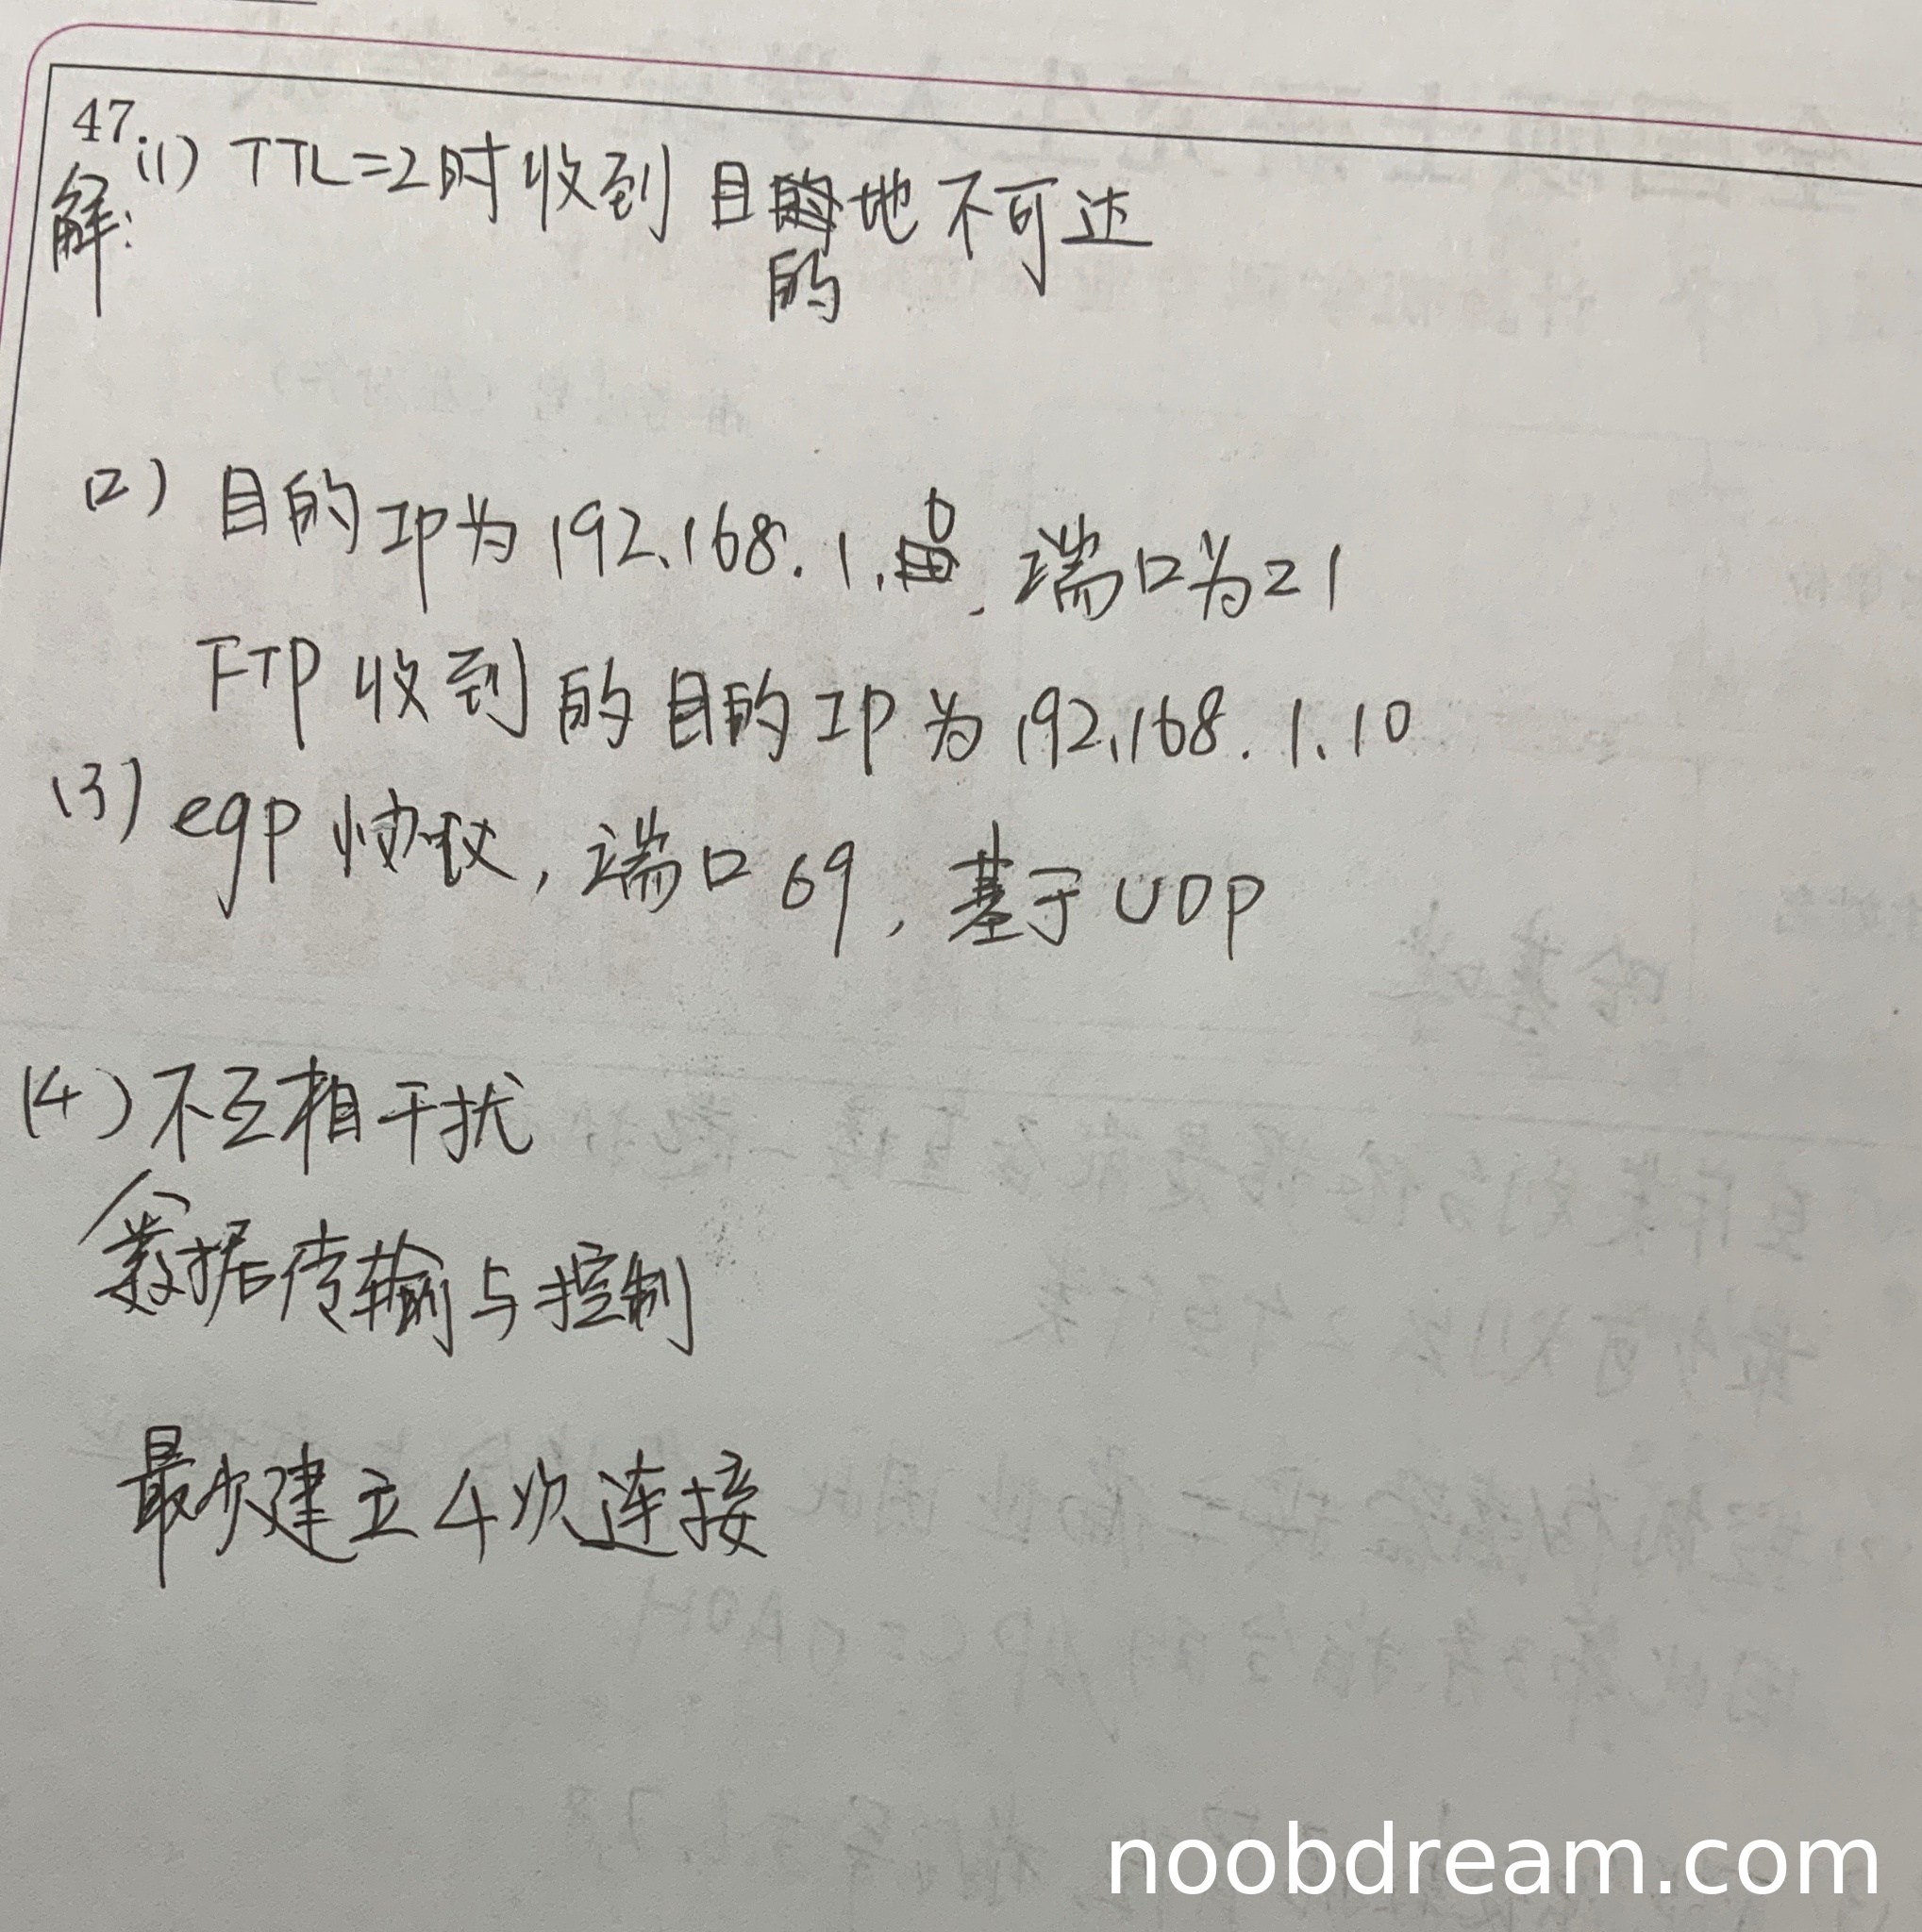 47.(1) TTL=2时收到目的地不可达
解:
(2) 目的IP为192.168.1.0，端口为21
FTP收到的目的IP为192.168.1.10
(3) egp协议，端口69，基于UDP
(4) 不互相干扰
数据传输与控制
最少建立4次连接
noobdream.com